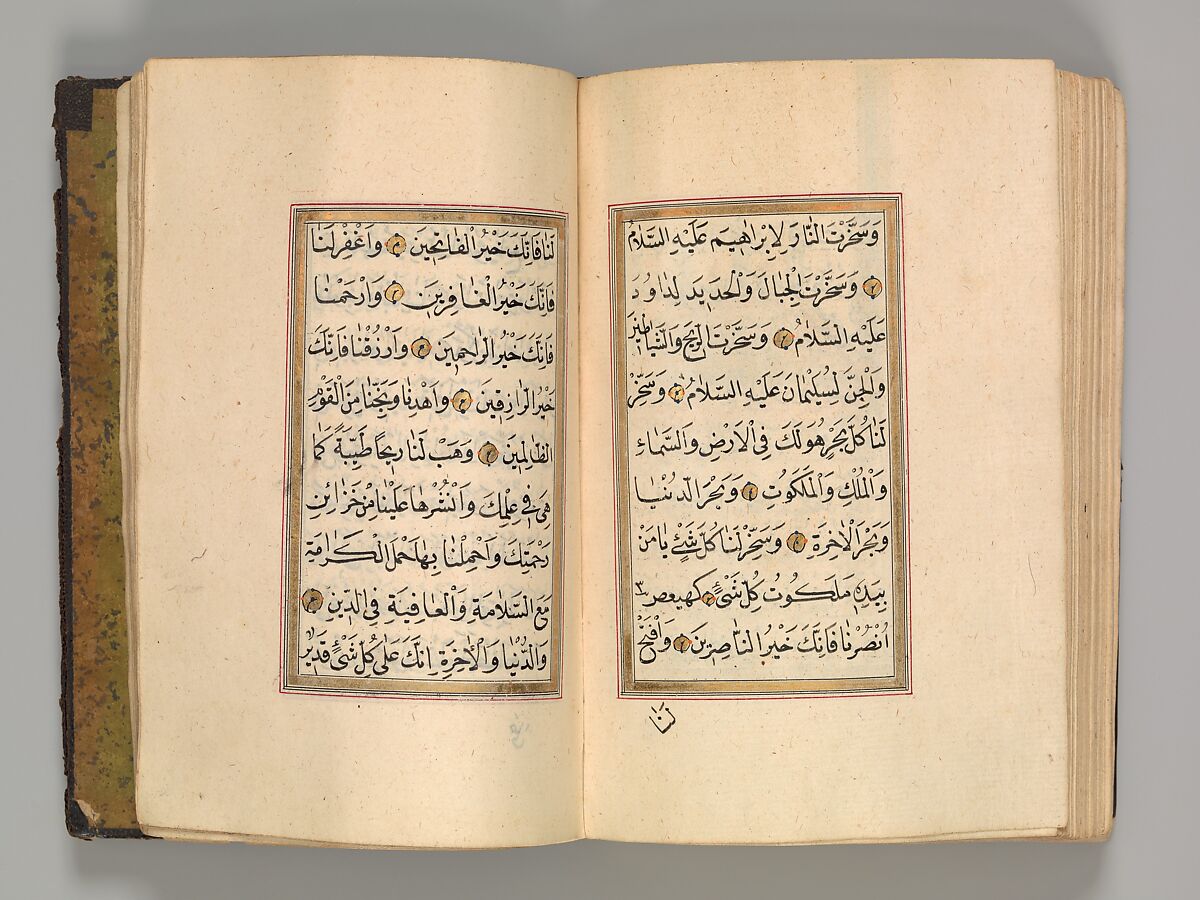 وَسَخَّرْتَ النَّارَ لِاِبْرٰاهٖيمَ عَلَيْهِ السَّلَامُ
وَسَخَّرْتَ الْجِبَالَ وَالْحَدٖيدَ لِدٰاوُدَ
عَلَيْهِ السَّلَامُ وَسَخَّرْتَ الرّٖيحَ وَالشَّيَاطٖينَ
وَالْجِنَّ لِسُلَيْمٰانَ عَلَيْهِ السَّلَامُ وَسَخِّرْ
لَنَا كُلَّ بَحْرٍ هُوَ لَكَ فِي الْاَرْضِ وَالسَّمَاءِ
وَالْمُلْكِ وَالْمَلَكُوتِ وَبَحْرَ الدُّنْيَا
وَبَحْرَ الْاٰخِرَةِ وَسَخِّرْ لَنَا كُلَّ شَيْءٍ يَا مَنْ
بِيَدِهٖ مَلَكُوتُ كُلِّ شَيْءٍ كهيعص ٣
اُنْصُرْنَا فَاِنَّكَ خَيْرُ النَّاصِرٖينَ وَافْتَحْ
لَنَا
لَنَا فَاِنَّكَ خَيْرُ الْفَاتِحٖينَ وَاغْفِرْ لَنَا
فَاِنَّكَ خَيْرُ الْغَافِرٖينَ وَارْحَمْنَا
فَاِنَّكَ خَيْرُ الرَّاحِمٖينَ وَارْزُقْنَا فَاِنَّكَ
خَيْرُ الرَّازِقٖينَ وَاهْدِنَا وَنَجِّنَا مِنَ الْقَوْمِ
الظَّالِمٖينَ وَهَبْ لَنَا رٖيحًا طَيِّبَةً كَمَا
هِيَ فٖي عِلْمِكَ وَانْشُرْهَا عَلَيْنَا مِنْ خَزَائِنِ
رَحْمَتِكَ وَاحْمِلْنَا بِهَا حَمْلَ الْكَرَامَةِ
مَعَ السَّلَامَةِ وَالْعَافِيَةِ فِي الدّٖينِ
وَالدُّنْيَا وَالْاٰخِرَةِ اِنَّكَ عَلٰى كُلِّ شَيْءٍ قَدٖيرٌ